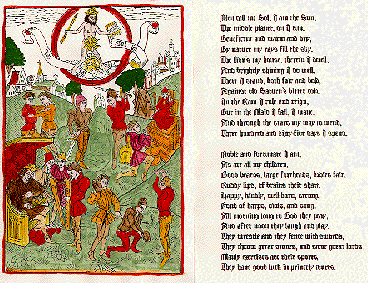 Men call me Sol, I am the Sun,
The middle planet, on I run.
Beneficent and warm and dry,
By nature my rays fill the sky.
The Lion's my house, therein I dwell,
And brightly shining I do well,
There I stand, both fair and bold,
Against old Saturn's bitter cold.
In the Ram I rule and reign,
But in the Maid I fall, I wane.
And through the stars my way to wend,
Three hundred and sixty-five days I spend.
Noble and fortunate I am,
As are all my children,
Good beards, large foreheads, bodies fair,
Ruddy lips, of brains their share.
Happy, kindly, well born, strong,
Fond of harps, viols, and song.
All morning long to God they pray,
And after noon they laugh and play.
They wrestle and they fence with swords,
They throw great stones, and serve great lords.
Manly exercises are their sports,
They have good luck in princely courts.